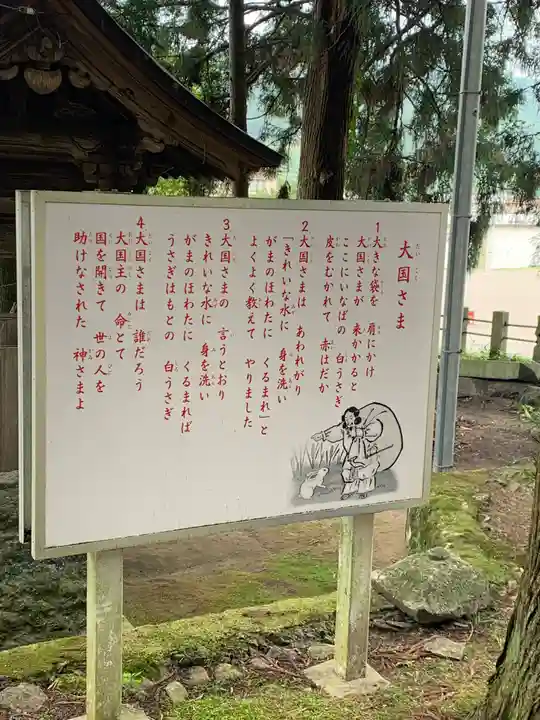 大国さま
1大きな袋を 肩にかけ
大国さまが 来かかると
ここにいなばの 白うさぎ
皮をむかれて 赤はだか
2大国さまは あわれがり
「きれいな水に 身を洗い
がまのほわたに くるまれ」と
よくよく教えて やりました
3大国さまの 言うとおり
きれいな水に 身を洗い
がまのほわたに くるまれば
うさぎはもとの 白うさぎ
4大国さまは 誰だろう
大国主の 命とて
国を開きて 世の人を
助けなされた 神さまよ